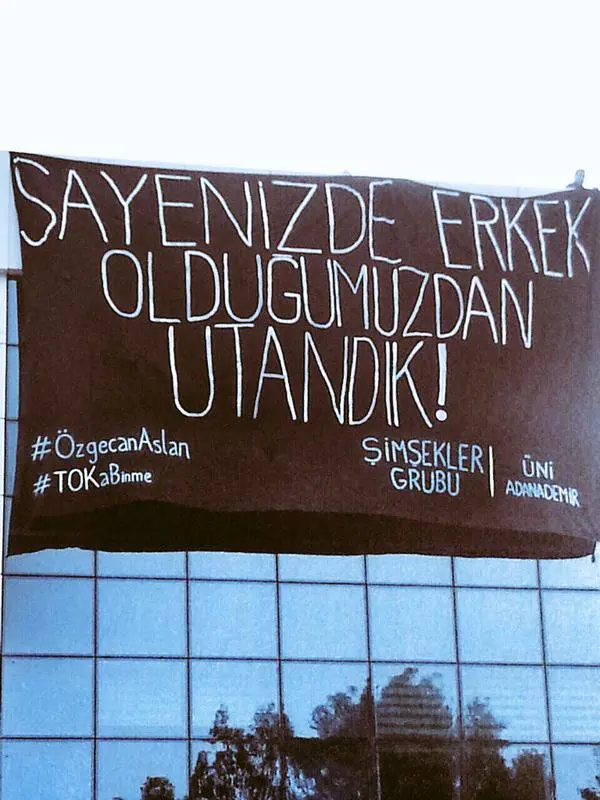 SAYENİZDE ERKEK
OLDUĞUMUZDAN
UTANDIK!
#ÖzgecanAslan
#TOKaBinme
ŞİMŞEKLER
GRUBU
ÜNİ
ADANADEMİR